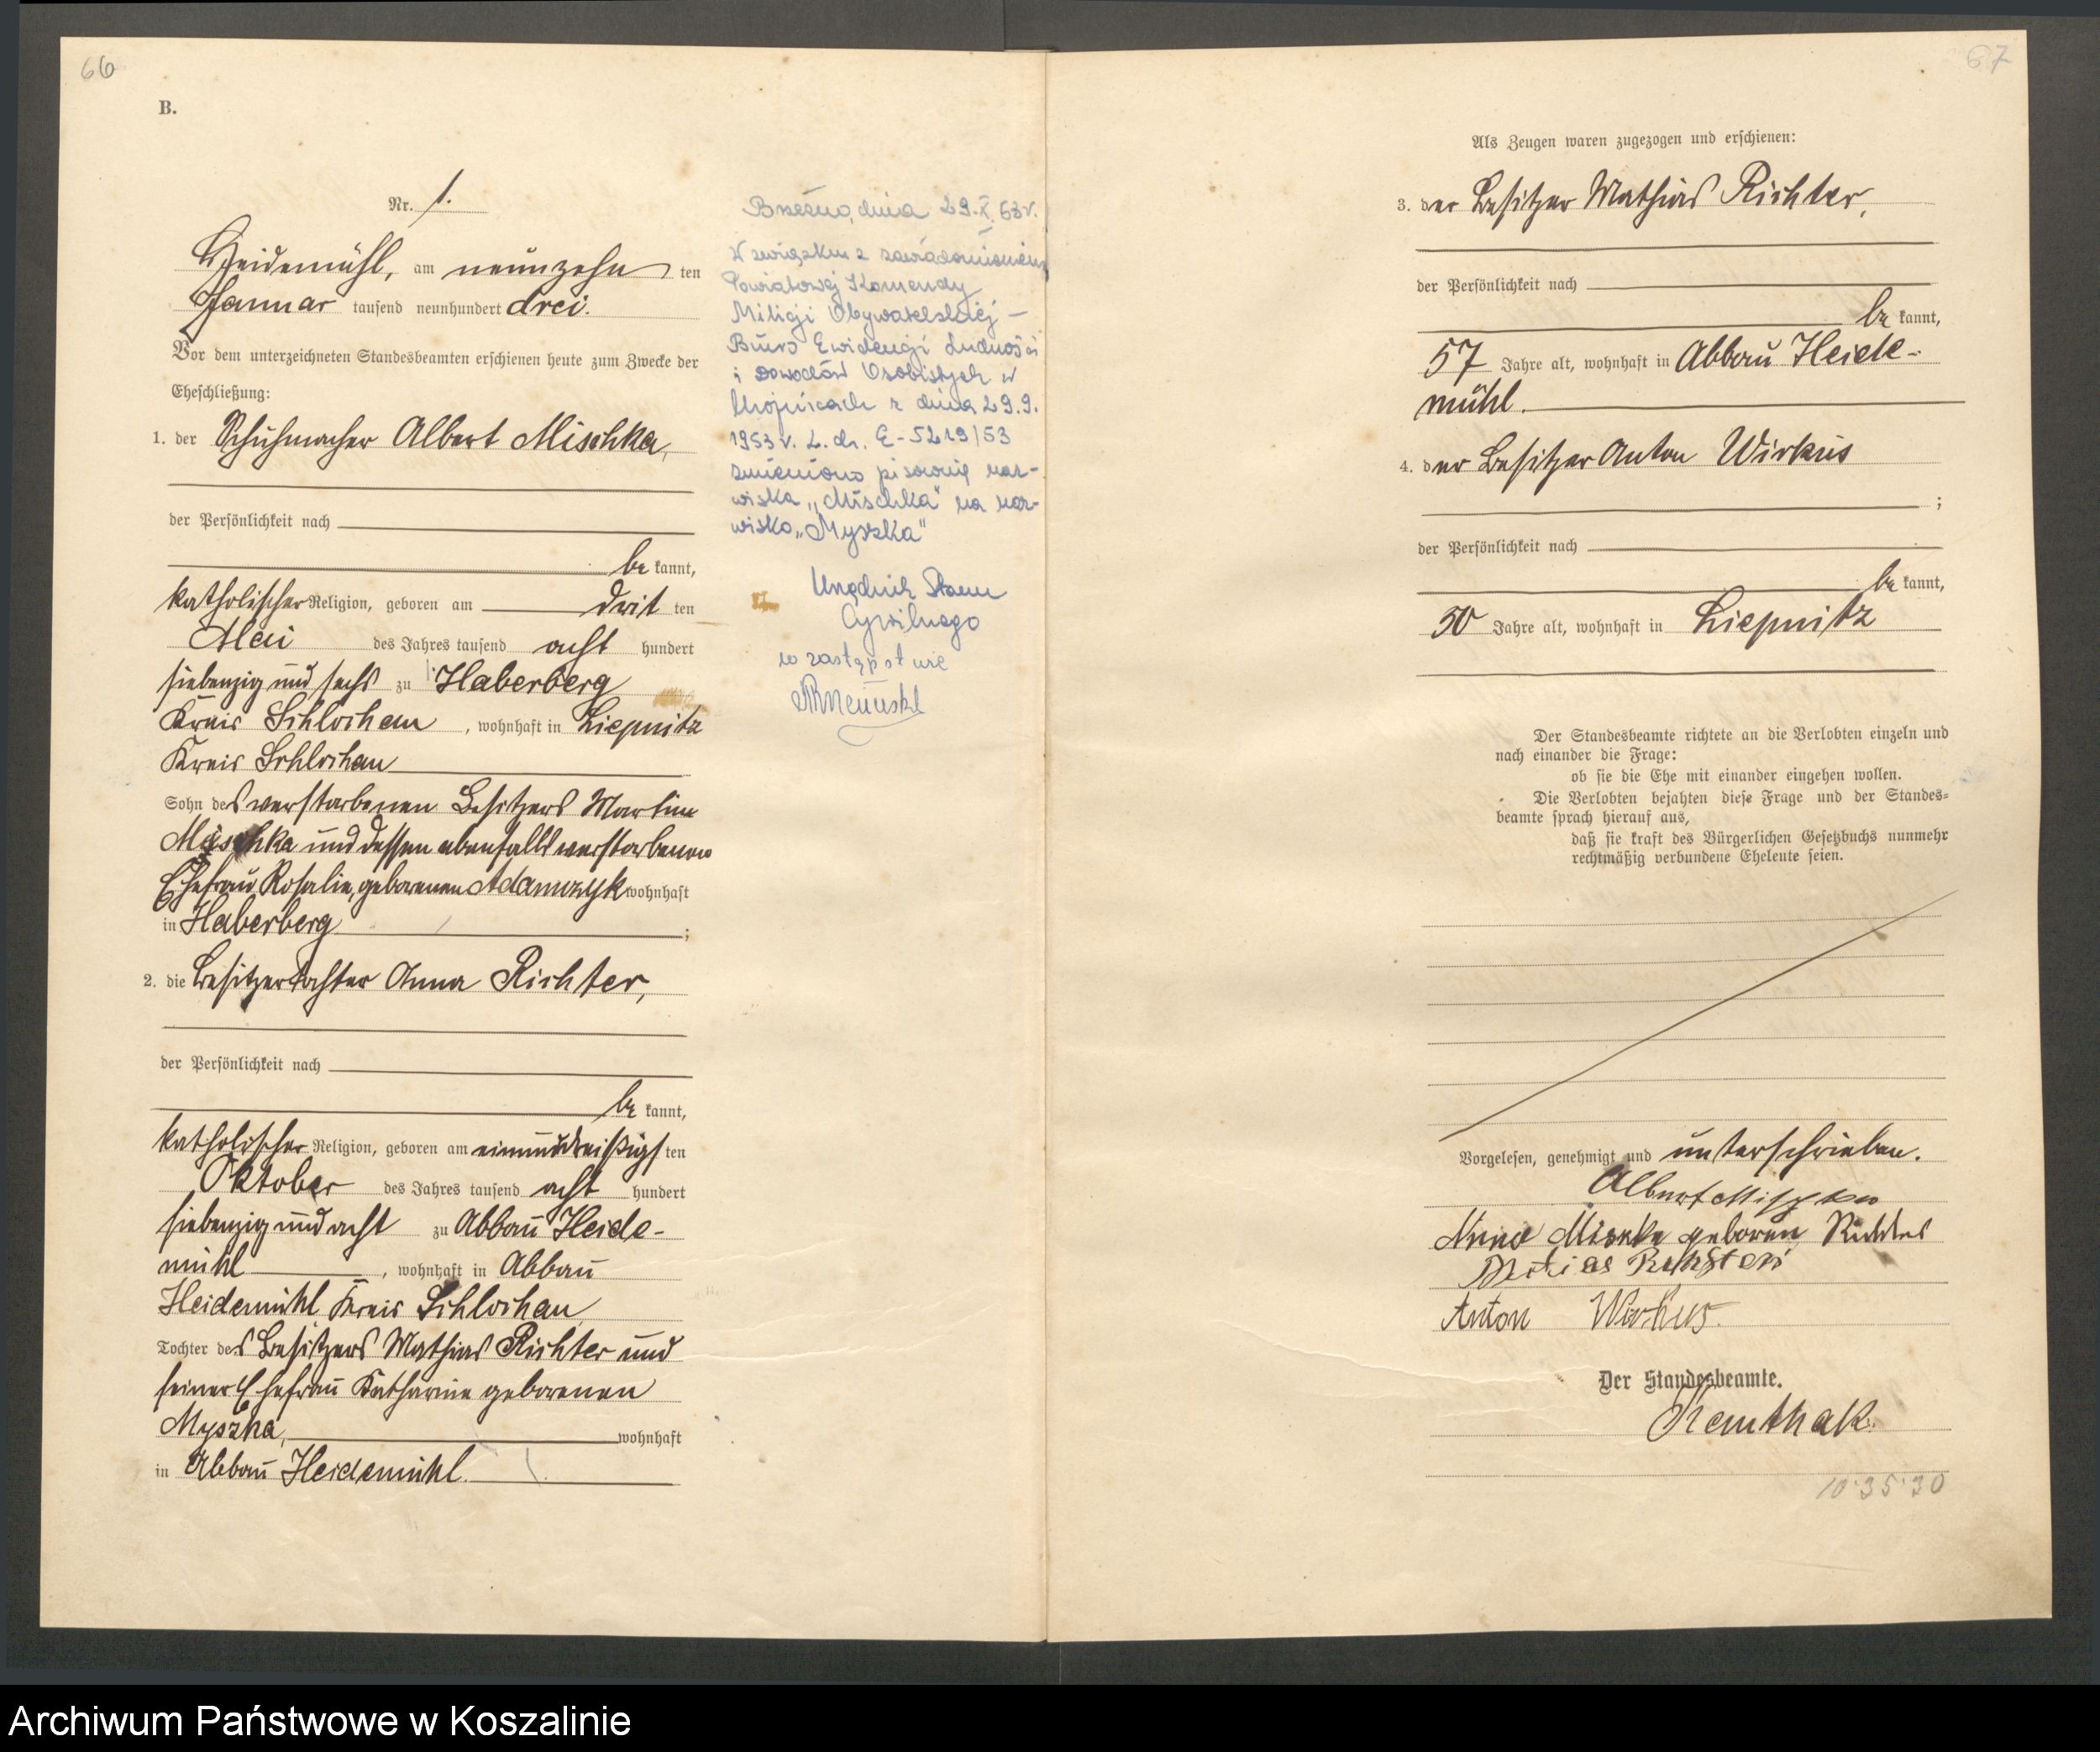 66
B.
Nr. 1.
Heidemühl, am neunzehn ten
Januar tausend neunhundert drei.
Vor dem unterzeichneten Standesbeamten erschienen heute zum Zwecke der
Eheschließung:
1. der Schuhmacher Albert Mischka,
der Persönlichkeit nach
be kannt,
katholischer Religion, geboren am dritten
Mai des Jahres tausend acht hundert
siebenzig und sechs zu Haberberg
Kreis Schlochau, wohnhaft in Liepnitz
Kreis Schlochau
Sohn des verstorbenen Besitzers Martin
Mischka und dessen ebenfalls verstorbenen
Ehefrau, Rosalie, geborenen Adamczyk wohnhaft
in Haberberg;
2. die Besitzertochter Anna Richter,
der Persönlichkeit nach
be kannt,
katholischer Religion, geboren am einunddreißigsten
Oktober des Jahres tausend acht hundert
siebenzig und acht zu Abbau Heide-
mühl, wohnhaft in Abbau
Heidemühl Kreis Schlochau,
Tochter des Besitzers Mathias Richter und
seiner Ehefrau Katharine geborenen
Myszka, wohnhaft
in Abbau Heidemühl.
Brzeźno, dnia 29.X.53r.
W związku z zawiadomieniem
Powiatowej Komendy
Milicji Obywatelskiej –
Biuro Ewidencji Ludności
i Dowodów Osobistych w
Chojnicach z dnia 29.9.
1953 r. L.dz. E-5219/53
zmieniono pisownię naz-
wiska „Mischka" na naz-
wisko „Myszka"
Urzędnik Stanu
Cywilnego
w zastępstwie
67
Als Zeugen waren zugezogen und erschienen:
3. der Besitzer Mathias Richter,
der Persönlichkeit nach
be kannt,
57 Jahre alt, wohnhaft in Abbau Heide-
mühl.
4. der Besitzer Anton Wirkus
;
der Persönlichkeit nach
be kannt,
50 Jahre alt, wohnhaft in Liepnitz
Der Standesbeamte richtete an die Verlobten einzeln und
nach einander die Frage:
ob sie die Ehe mit einander eingehen wollen.
Die Verlobten bejahten diese Frage und der Standes-
beamte sprach hierauf aus,
daß sie kraft des Bürgerlichen Gesetzbuchs nunmehr
rechtmäßig verbundene Eheleute seien.
Vorgelesen, genehmigt und unterschrieben.
Albert Mischka
Anna Mischka geboren Richter
Matias Richter
Anton Wirkus.
Der Standesbeamte.
10.35.30
Archiwum Państwowe w Koszalinie